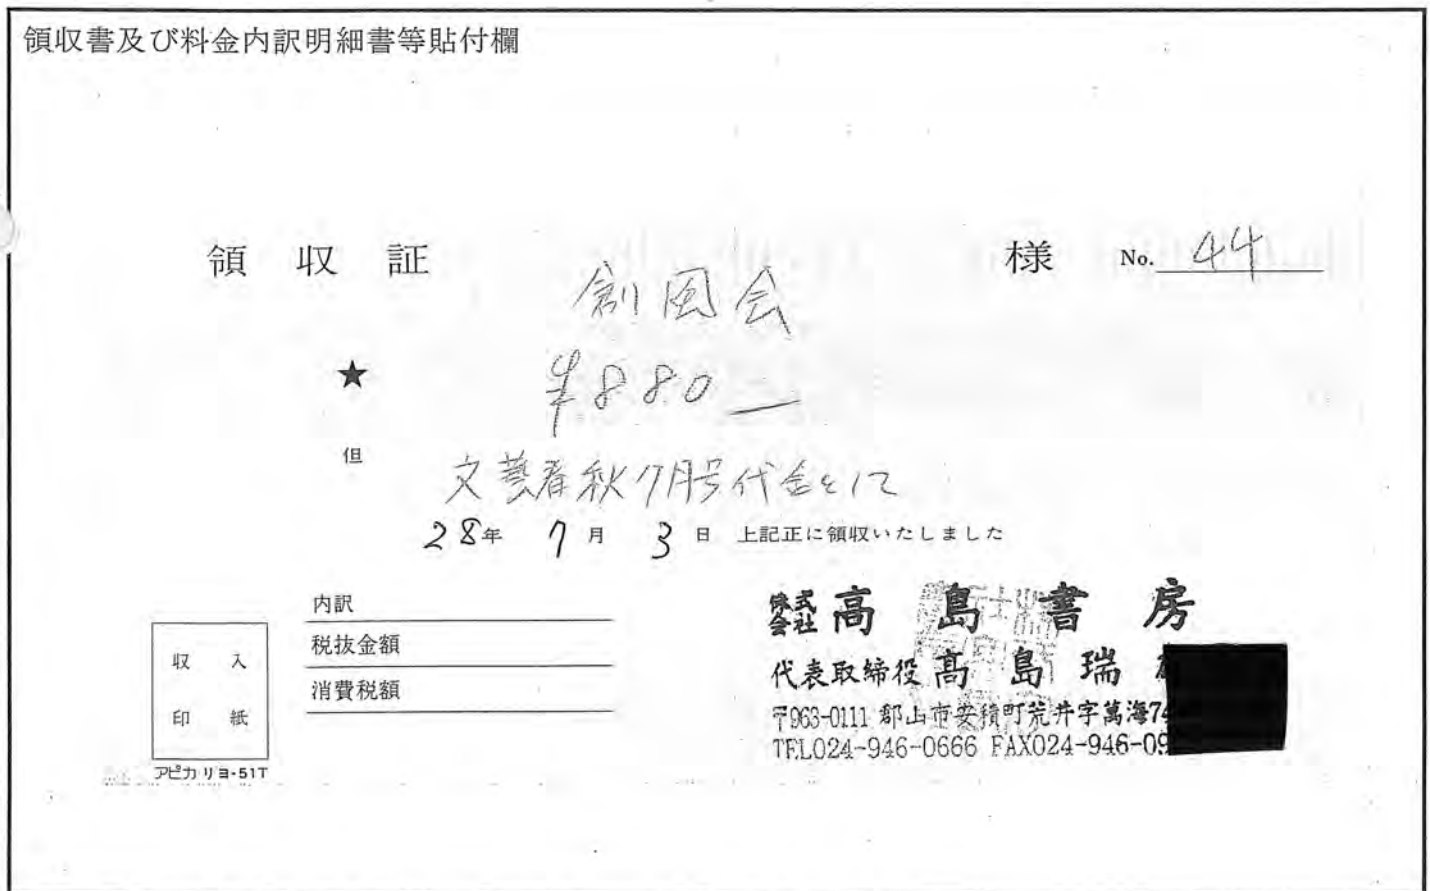 領収書及び料金内訳明細書等貼付欄
領 収 証 様 No. 44
創風会
★ ¥880
但 文藝春秋7月号代金として
28年 7月 3日 上記正に領収いたしました
内訳
税抜金額
消費税額
収入
印紙
アピカ リヨ-51T
株式会社 高島書房
代表取締役 高島瑞
〒963-0111 郡山市安積町荒井字萬海74
TEL024-946-0666 FAX024-946-09